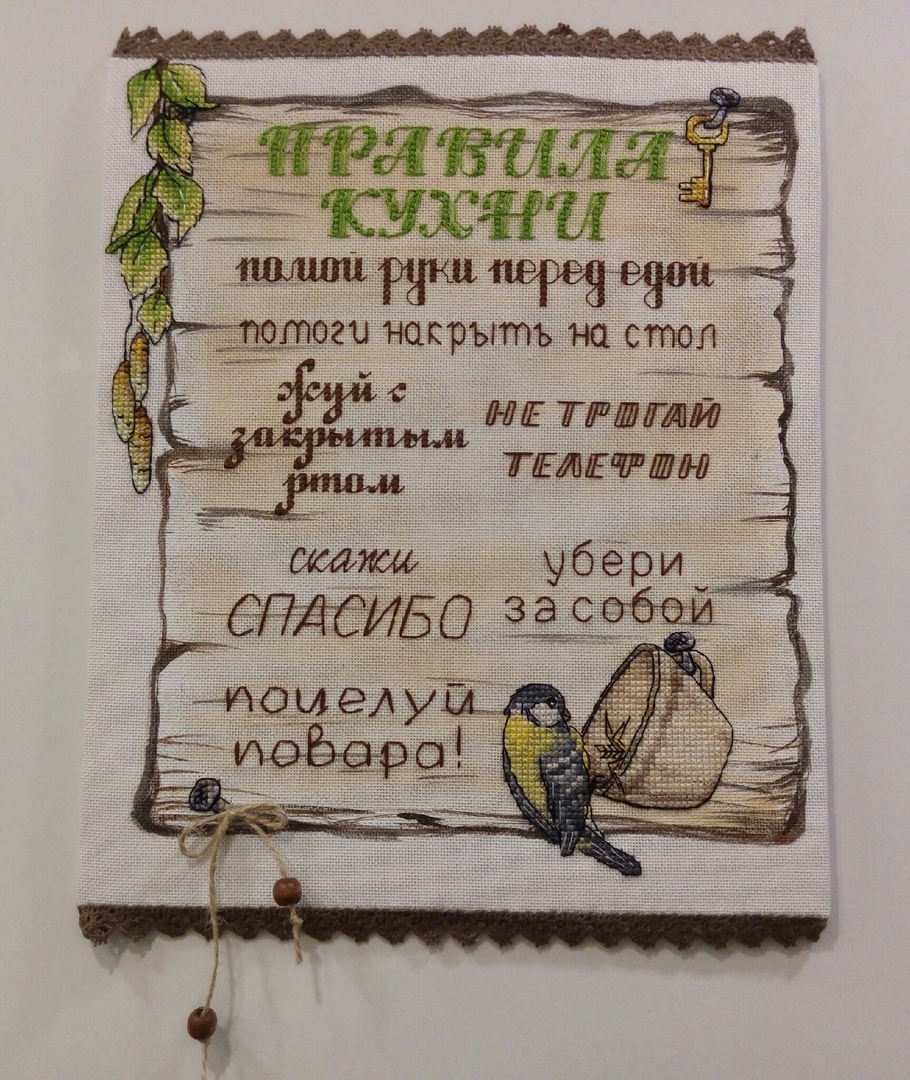 ПРАВИЛА
КУХНИ
помой руки перед едой
помоги накрыть на стол
жуй с
закрытым
ртом
НЕ ТРОГАЙ
ТЕЛЕФОН
скажи
СПАСИБО
убери
за собой
поцелуй
повара!